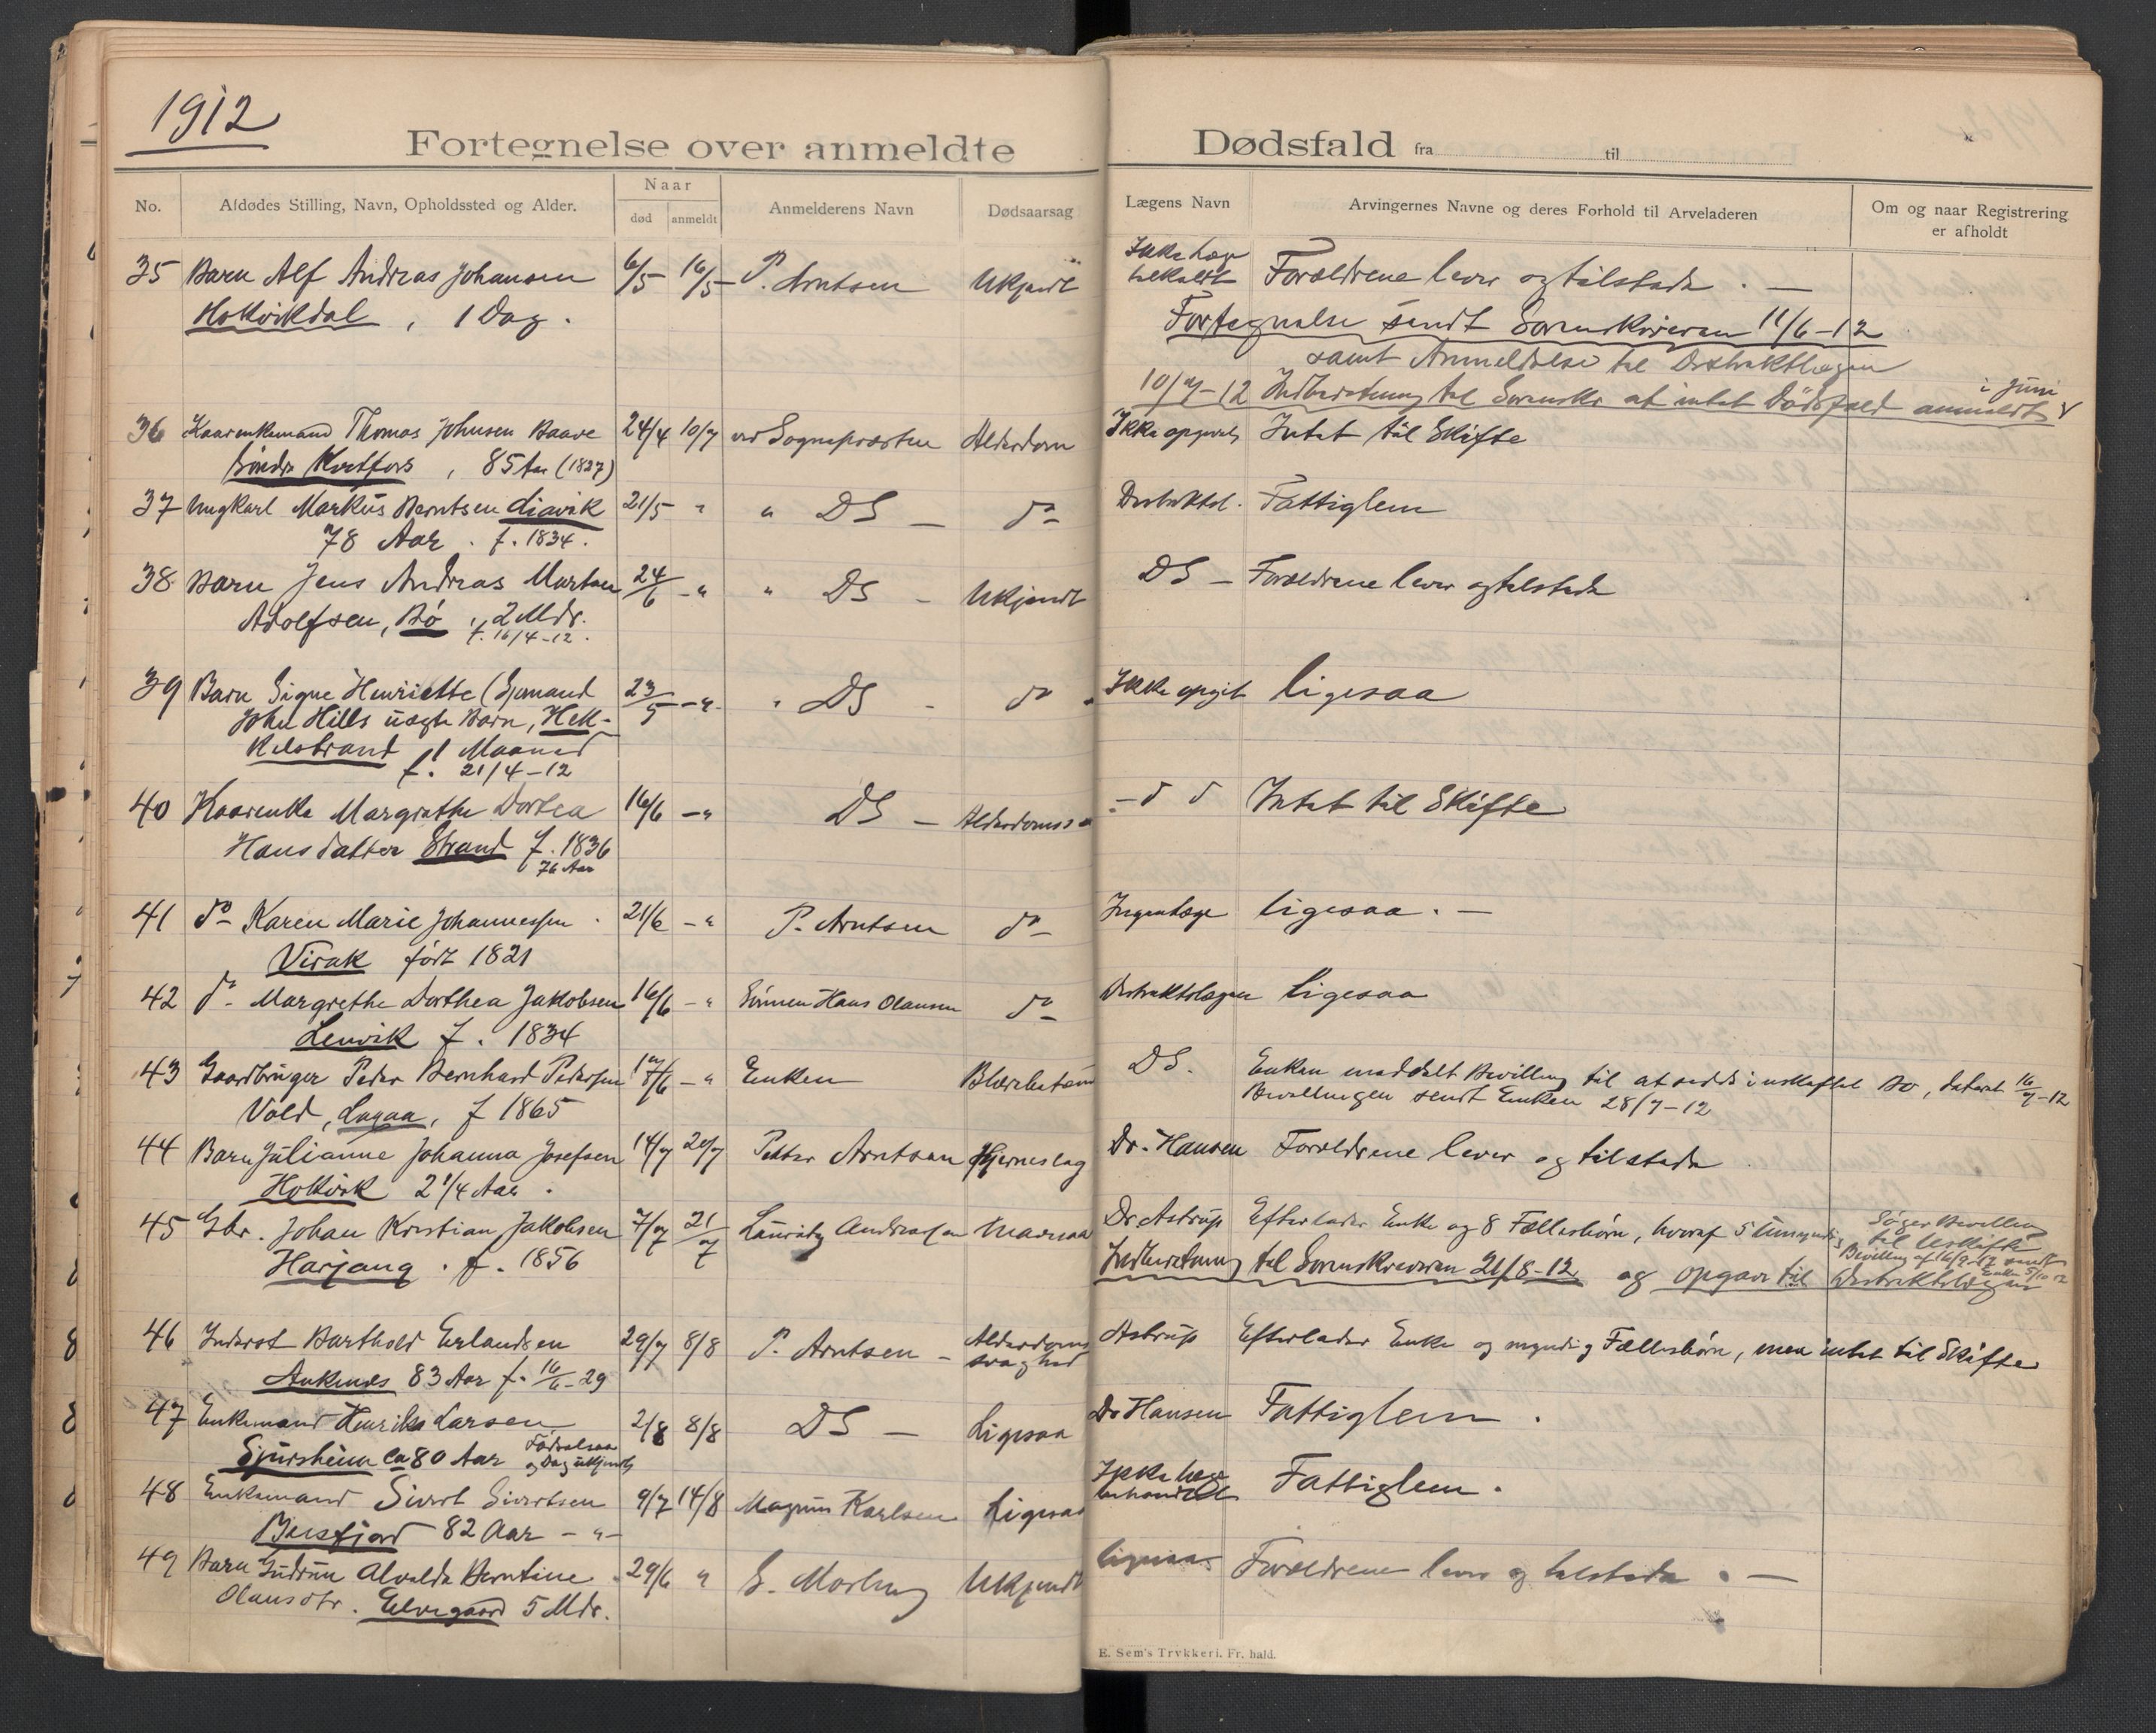 1912
Fortegnelse over anmeldte Dødsfald fra til
No.
Afdødes Stilling, Navn, Opholdssted og Alder.
Naar
død anmeldt
Anmelderens Navn
Dødsaarsag
Lægens Navn
Arvingernes Navne og deres Forhold til Arveladeren
Om og naar Registrering
er afholdt
35 Barn Alf Andreas Johansen 6/5 16/5 P. Arntsen Ukjendt Ikke Læge Forældrene lever og tilstede . —
Holkvikdal , 1 Dag . tilkaldt
Fortegnelse sendt Sorenskriveren 11/6-12
samt Anmeldelse til Distriktlægen
10/7-12 Indberetning til Sorenskr at intet Dødsfald anmeldt i Juni
36 Kaarenkemand Thomas Johnsen Baave 24/4 10/7 ved Sognepræsten Alderdom Ikke opgivet Intet til Skifte
søndre , 85 Aar (1827)
37 Ungkarl Markus Berntsen Liavik 21/5 " " DS — do Distriktsl. Fattiglem
78 Aar . f. 1834 .
38 Barn Jens Andreas Morten 24/6 - " " DS — Ukjendt DS — Forældrene lever og tilstede
Adolfsen, Bø , 2 Mdr.
f. 16/4-12 .
39 Barn Signe Henriette (Sjømand 23/5 - " " DS — do Ikke opgit ligesaa
John Hills uægte Barn, Hek-
kelstrand 1 Maaned
f. 21/4-12
40 Kaarenke Margrethe Dortea 16/6 - " DS — do Intet til Skifte
Hansdatter Strand f. 1836
76 Aar
41 do Karen Marie Johannessen 21/6 - " P. Arntsen do Ingen Læge ligesaa . —
Virak født 1821
42 do Margrethe Dorthea Jakobsen 16/6 - " Sønnen Hans Olausen do Distriktslægen ligesaa
Lenvik f . 1834
43 Gaardbruger Peder Bernhard Pedersen 17/6 - " Enken DS. Enken meddelt Bevilling til at sidde i uskiftet Bo, dateret 16/7-12
Vold, , f 1865 Bevillingen sendt Enken 28/7-12
44 Barn Julianne Johanna Josefsen 14/7 20/7 Petter Arntsen Hjerneslag Dr. Hansen Forældrene lever og tilstede
Holkvik 2 1/4 Aar .
45 Gbr. Johan Kristian Jakobsen 7/7 21/7 Lauritz Andreasen Dr Astrup Efterlader Enke og 8 Fællesbørn, hvoraf 5 umyndig Søger Bevilling
til Uskifte
Harjang . f. 1856 Bevilling af 16/9-12 sendt
Enken 5/10 12
Indberetning til Sorenskriveren 21/8-12. og opgave til Distriktslægen
46 Inderst Barthold Erlandsen 29/7 8/8 P. Arntsen — Alderdoms Astrup Efterlader Enke og myndig Fællesbørn, men intet til Skifte
Ankenes 83 Aar f. 16/6-29 svaghed
47 Enkemand Henrik Larsen 2/8 8/8 DS — Ligesaa Dr Hansen Fattiglem .
Sjursheim ca 80 Aar Fødselsaar
og Dag ukjendt
48 Enkemand Sivert Sivertsen 9/7 14/8 Magnus Karlsen Ligesaa Ikke Læge Fattiglem .
Beisfjord 82 Aar - " - behandlet
49 Barn Gudrun Alvalda Berntine 29/6 " Ukjendt ligesaa Forældrene lever og tilstede . —
Olausdtr. Elvegaard 5 Mdr.
E. Sem's Trykkeri. Fr. hald.